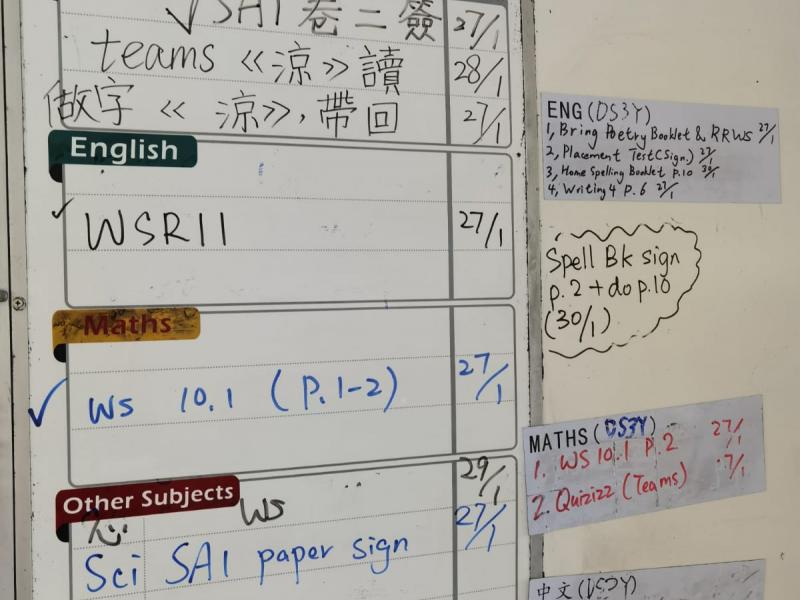 √ SA1 卷二簽 27/1
teams 《涼》讀 28/1
做字《涼》, 帶回 27/1
English
✓ WSR11 27/1
Maths
✓ WS 10.1 (P.1-2) 27/1
Other Subjects
WS 29/1
Sci SA1 paper sign 27/1
ENG (DS3Y)
1, Bring Poetry Booklet & RRWS 27/1
2, Placement Test (Sign.) 27/1
3, Home Spelling Booklet P.10 30/1
4, Writing 4 P.6 27/1
Spell Bk sign
p.2 + do p.10
(30/1)
MATHS (DS3Y)
1. WS 10.1 P.2 27/1
2. Quizizz (Teams) 7/1
中文 (DS3Y)